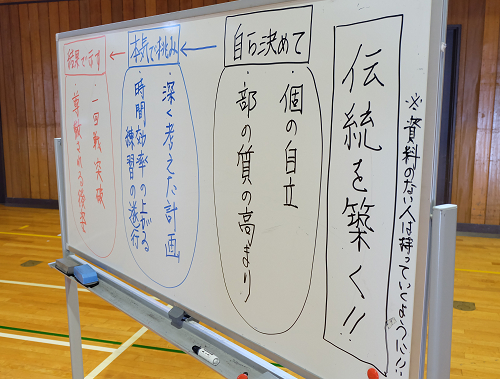 ※資料のない人は持っていくように!!
伝統を築く!!
自ら決めて
・個の自立
・部の質の高まり
本気で挑み
・深く考えた計画
・時間効率の上がる
練習の遂行
結果で示す
・一回戦突破
・尊敬される後姿